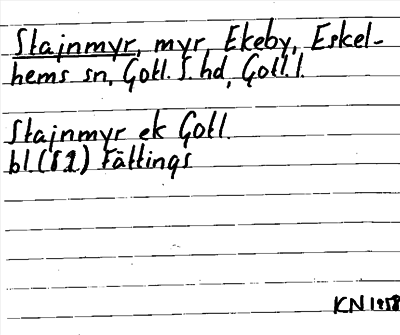 Stajnmyr, myr, Ekeby, Eskel-
hems sn, Gotl. S. hd, Gotl. l.
Stajnmyr ek Gotl.
bl. (51) Fättings
KN 1958